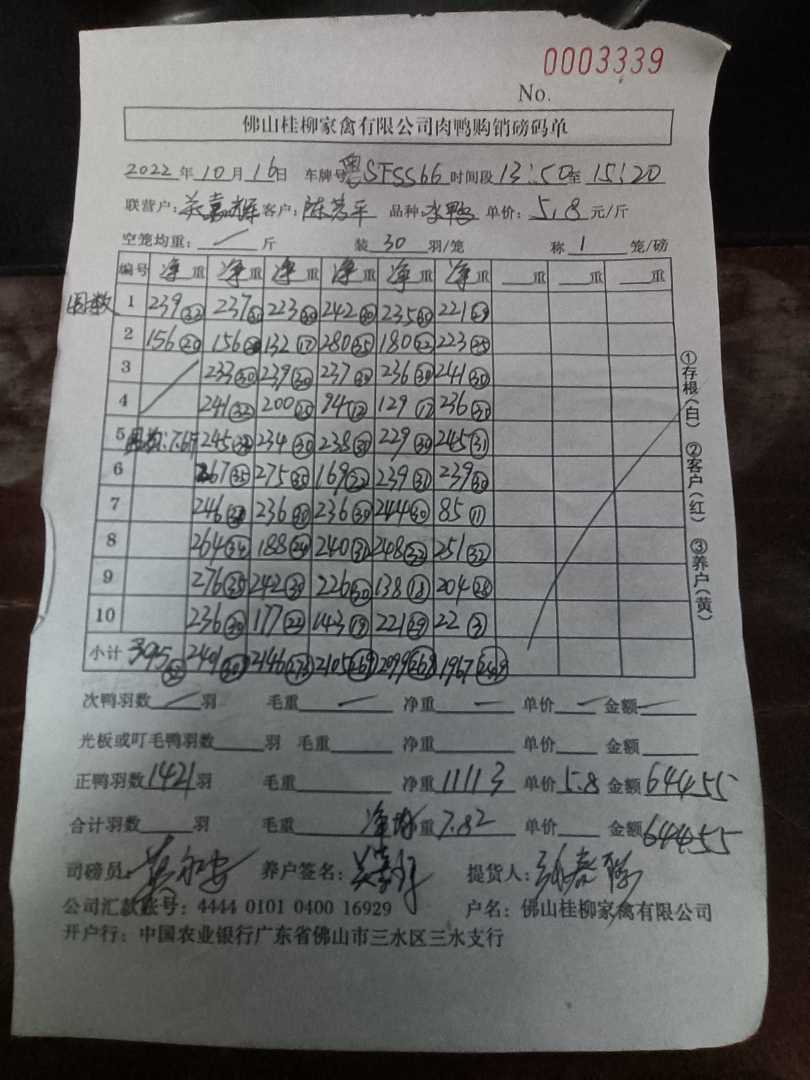 0003339
No.
佛山桂柳家禽有限公司肉鸭购销磅码单
2022年10月16日 车牌号粤SFSS66 时间段13:50至15:20
联营户:关嘉辉 客户:陈艺平 品种:水鸭 单价:5.8元/斤
空笼均重: 斤 装30羽/笼 称1笼/磅
编号 净重 净重 净重 净重 净重 净重 重 重 重
1 239 237 223 242 235 221(29)
2 156(20) 156 132(17) 280(35) 180(22) 223
3 233(30) 239(30) 237 236 241(30)
4 241(32) 200(25) 94(12) 129(17) 236(30)
5 245 234 238 229 245(31)
6 267(35) 275(35) 169(22) 239(31) 239(30)
7 246 236 236(30) 244(30) 85(11)
8 264(34) 188(24) 240(31) 248(32) 251(32)
9 276(35) 242 226(30) 138(18) 204(28)
10 236(30) 177(22) 143(19) 221(29) 22(3)
小计 395 2401 2146 2105(269) 2099(268) 1967
次鸭羽数 羽 毛重 净重 单价 金额
光板或叮毛鸭羽数 羽 毛重 净重 单价 金额
正鸭羽数1421羽 毛重 净重11113 单价5.8 金额64455
合计羽数 羽 毛重 净均重7.82 单价 金额64455
司磅员: 养户签名:关嘉辉 提货人:
公司汇款账号:4444 0101 0400 16929 户名:佛山桂柳家禽有限公司
开户行:中国农业银行广东省佛山市三水区三水支行
①存根(白) ②客户(红) ③养户(黄)